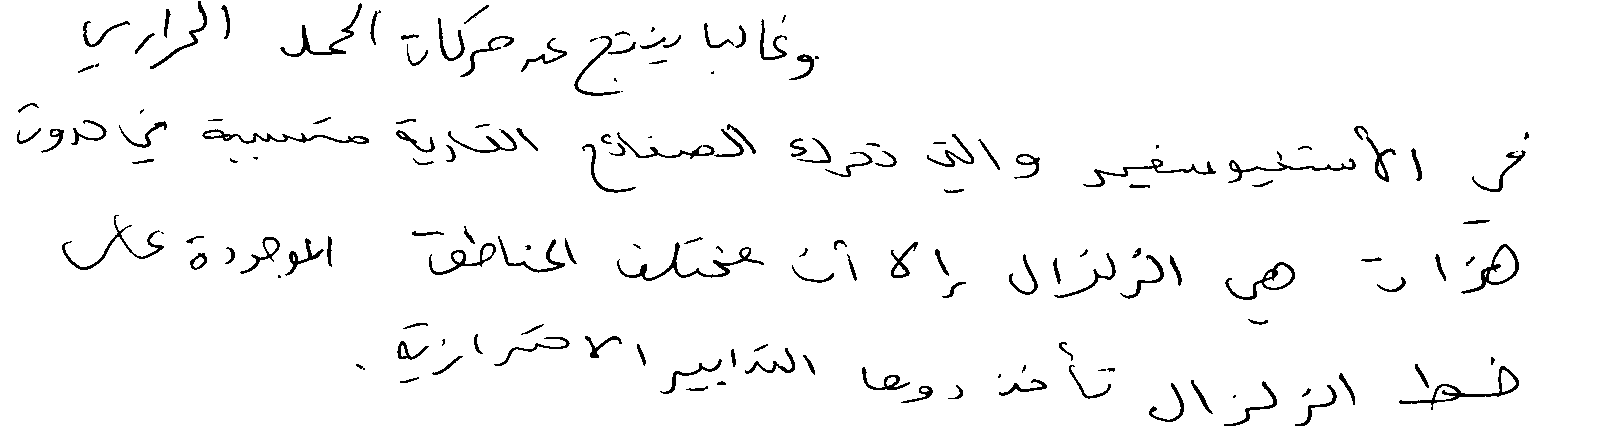 وغالبا ينتج عن حركات الحمل الحراري
في الأستنيوسفير والتي تحرك الصفائح القارية متسببة في حدوث
هزات هي الزلزال إلا أن مختلف المناطق الموجودة على
خط الزلزال تأخذ دوما التدابير الاحترازية.